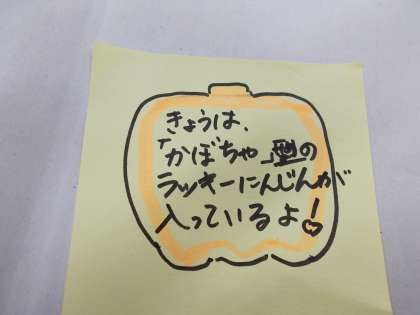 きょうは、
「かぼちゃ」型の
ラッキーにんじんが
入っているよ!